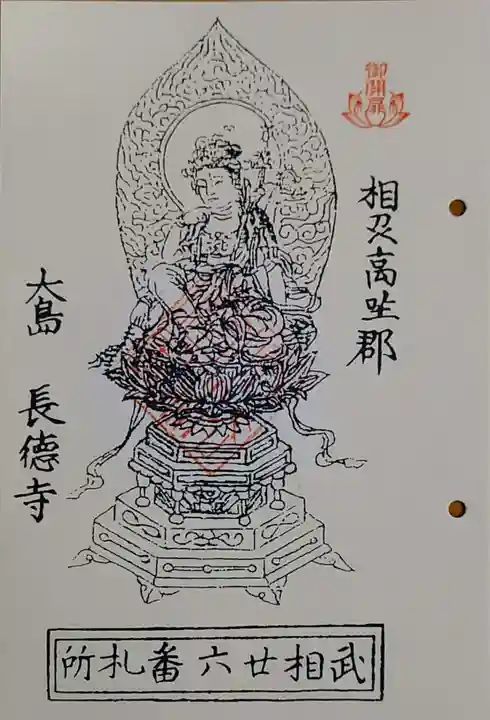 御開扉
相刕高座郡
大島 長徳寺
武相廿六番札所